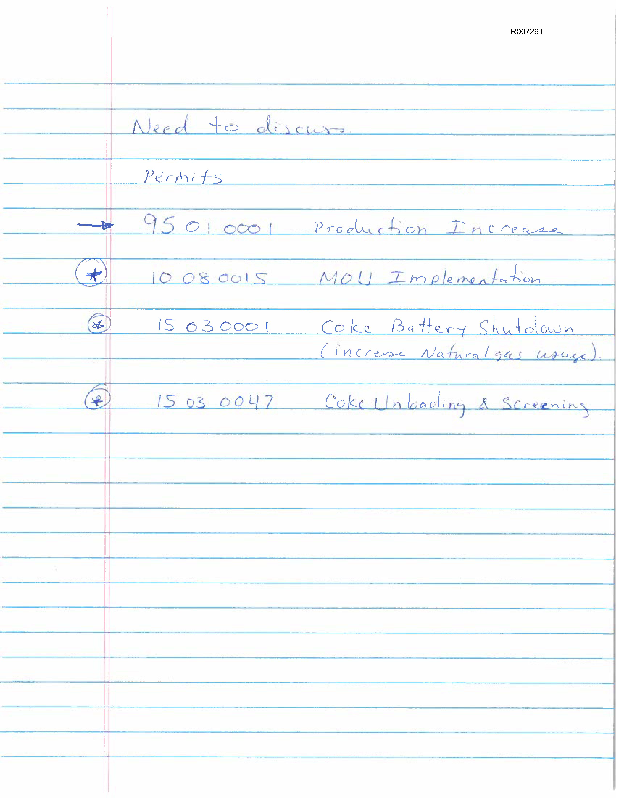 R007291
Need to discuss
Permits
→ 95 01 0001 Production Increase
* 10 08 0015 MOU Implementation
* 15 03 0001 Coke Battery Shutdown
(increase Natural gas usage).
* 15 03 0047 Coke Unloading & Screening